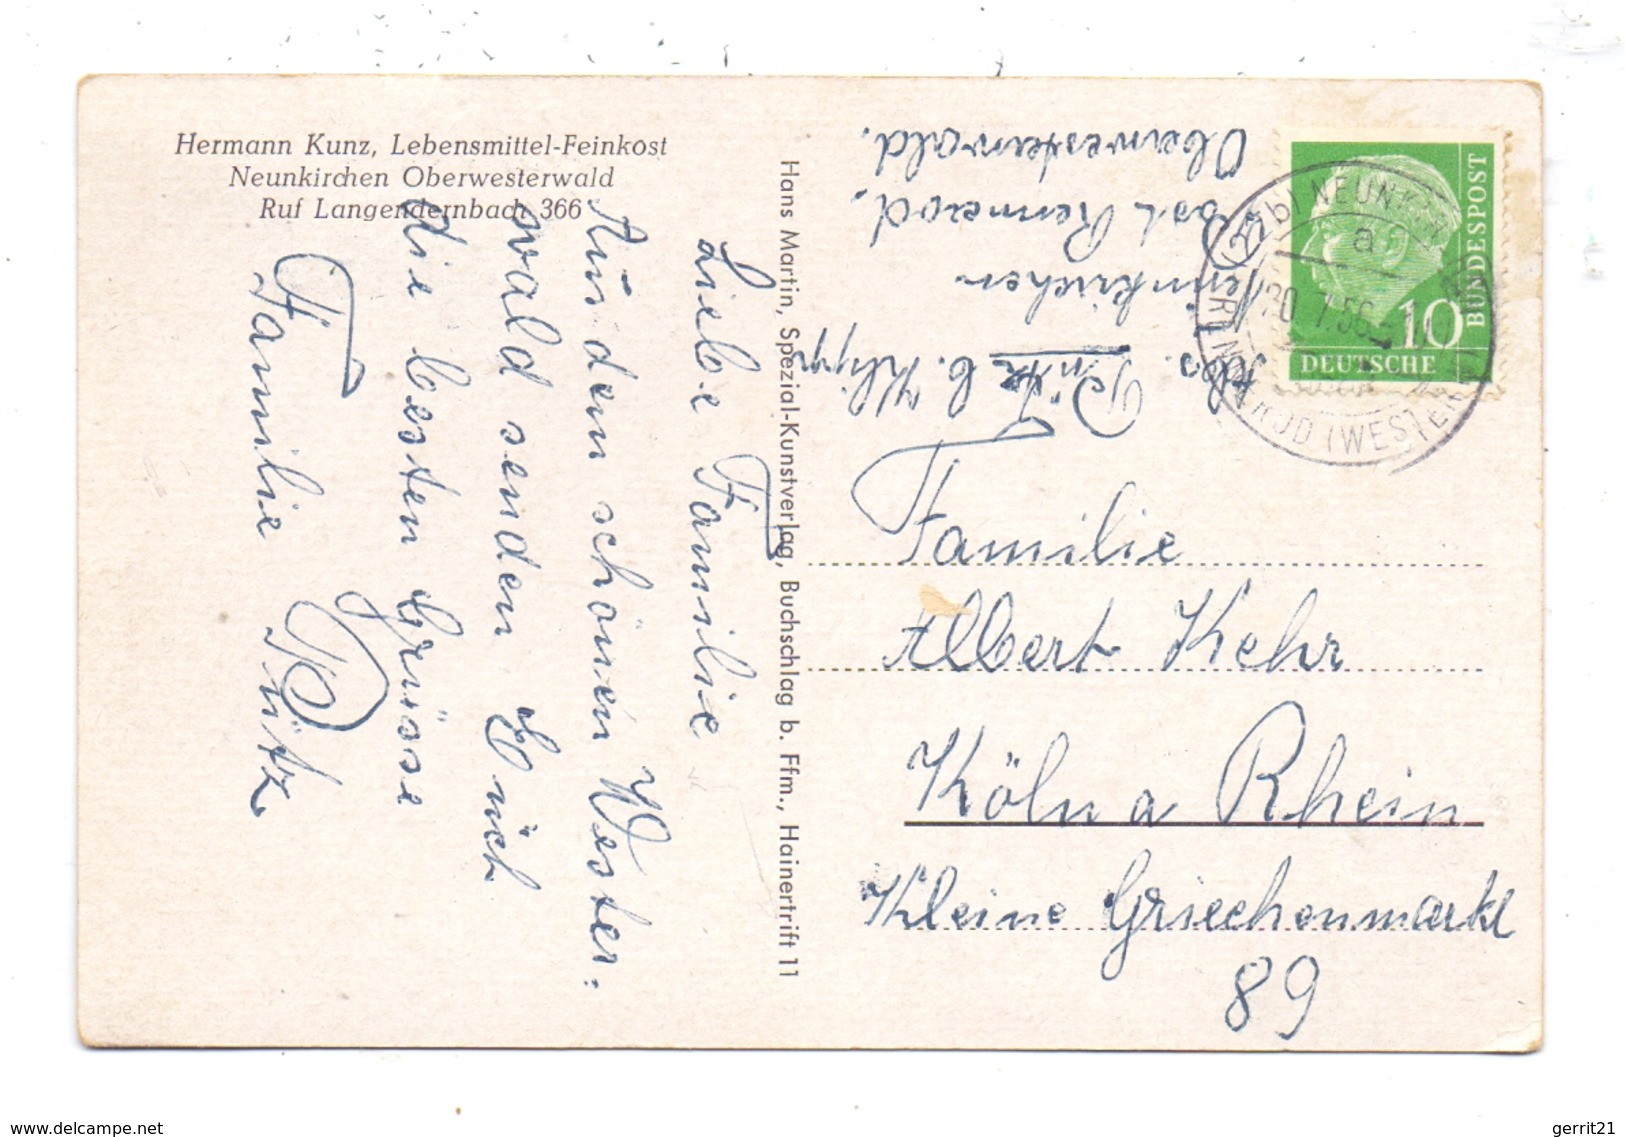 Hermann Kunz, Lebensmittel-Feinkost
Neunkirchen Oberwesterwald
Ruf Langendernbach 366
Liebe Familie
Aus dem schönen Wester-
wald senden Euch
die besten Grüsse
Familie Pütz
Hans Martin, Spezial-Kunstverlag, Buchschlag b. Ffm., Hainertrift 11
Abs. Pütz b. Klipp
Neunkirchen
Post Rennerod.
Oberwesterwald.
(22b) NEUNKIRCHEN
a
30.7.56
RENNEROD (WESTERW
DEUTSCHE
BUNDESPOST
10
Familie
Albert Kehr
Köln a Rhein
Kleine Griechenmarkt
89
www.delcampe.net
gerrit21